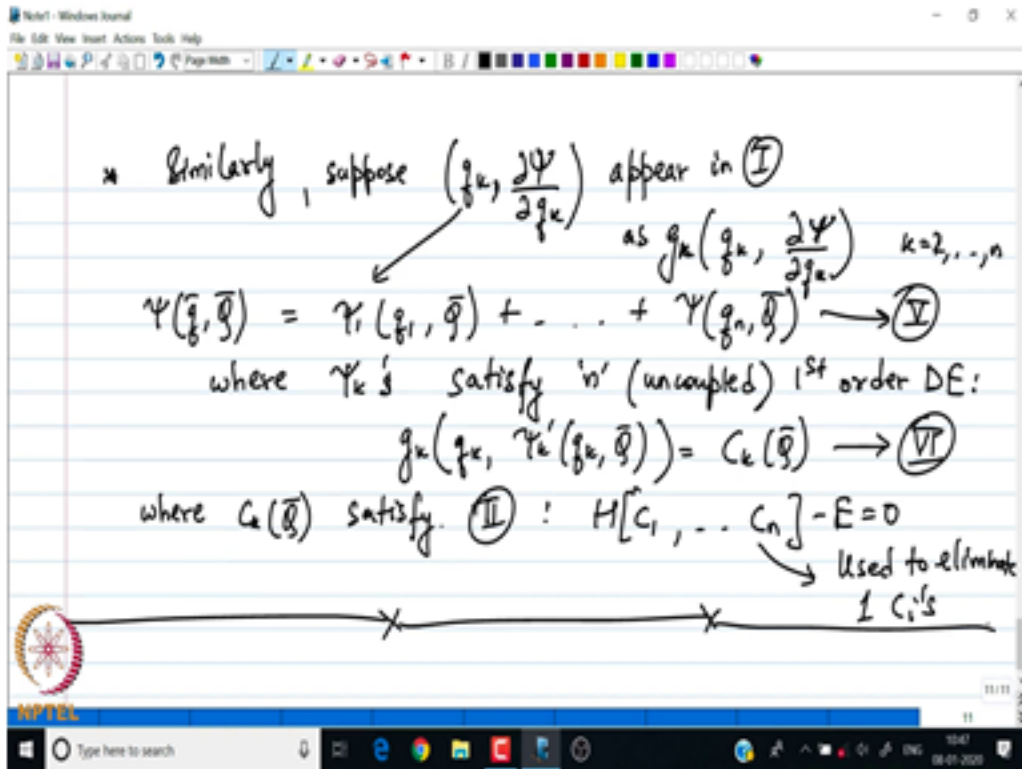 Note1 - Windows Journal
File Edit View Insert Actions Tools Help
Page Width
* Similarly, suppose (q_k, ∂Ψ/∂q_k) appear in Ⓘ
as g_k(q_k, ∂Ψ/∂q_k) k=2,..,n
Ψ(q̄, Q̄) = Ψ_1(q_1, Q̄) + . . . + Ψ(q_n, Q̄) → (V)
where Ψ_k's satisfy 'n' (uncoupled) 1st order DE:
g_k(q_k, Ψ_k'(q_k, Q̄)) = C_k(Q̄) → (VI)
where C_k(Q̄) satisfy. (II) : H[C_1, . . C_n] - E = 0
Used to eliminate
1 C_i's
NPTEL
11/11
11
Type here to search
ENG
10:47
08-01-2020